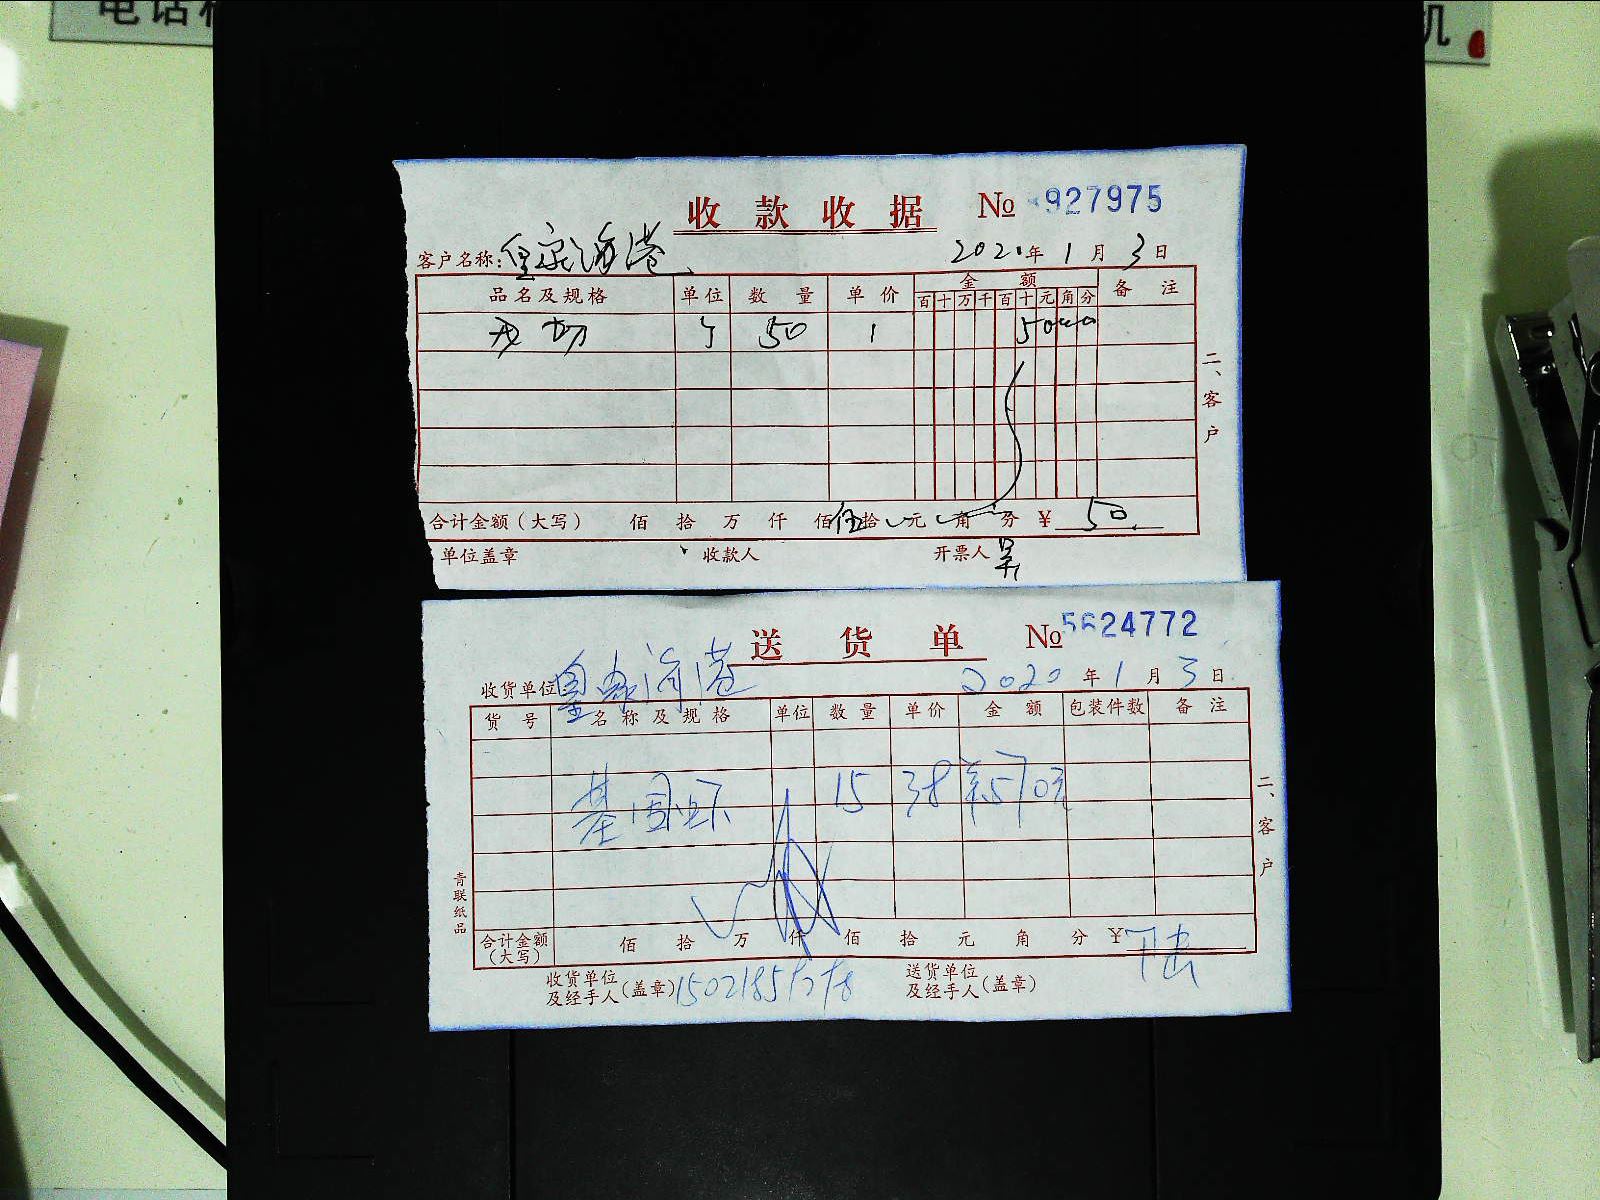 电话
机
收款收据 № 927975
客户名称：皇家海港 2020年1月3日
品名及规格 单位 数量 单价 金额 备注
百十万千百十元角分
50 1 5000
二、客户
合计金额（大写） 佰 拾 万 仟 佰 伍拾 元 角 分 ¥ 50
单位盖章 收款人 开票人
送货单 № 5624772
收货单位 皇家海港 2020年1月3日
货号 名称及规格 单位 数量 单价 金额 包装件数 备注
基围虾 15 38 570元
二、客户
青联纸品
合计金额（大写） 佰 拾 万 仟 佰 拾 元 角 分 ¥
收货单位及经手人（盖章） 送货单位及经手人（盖章）